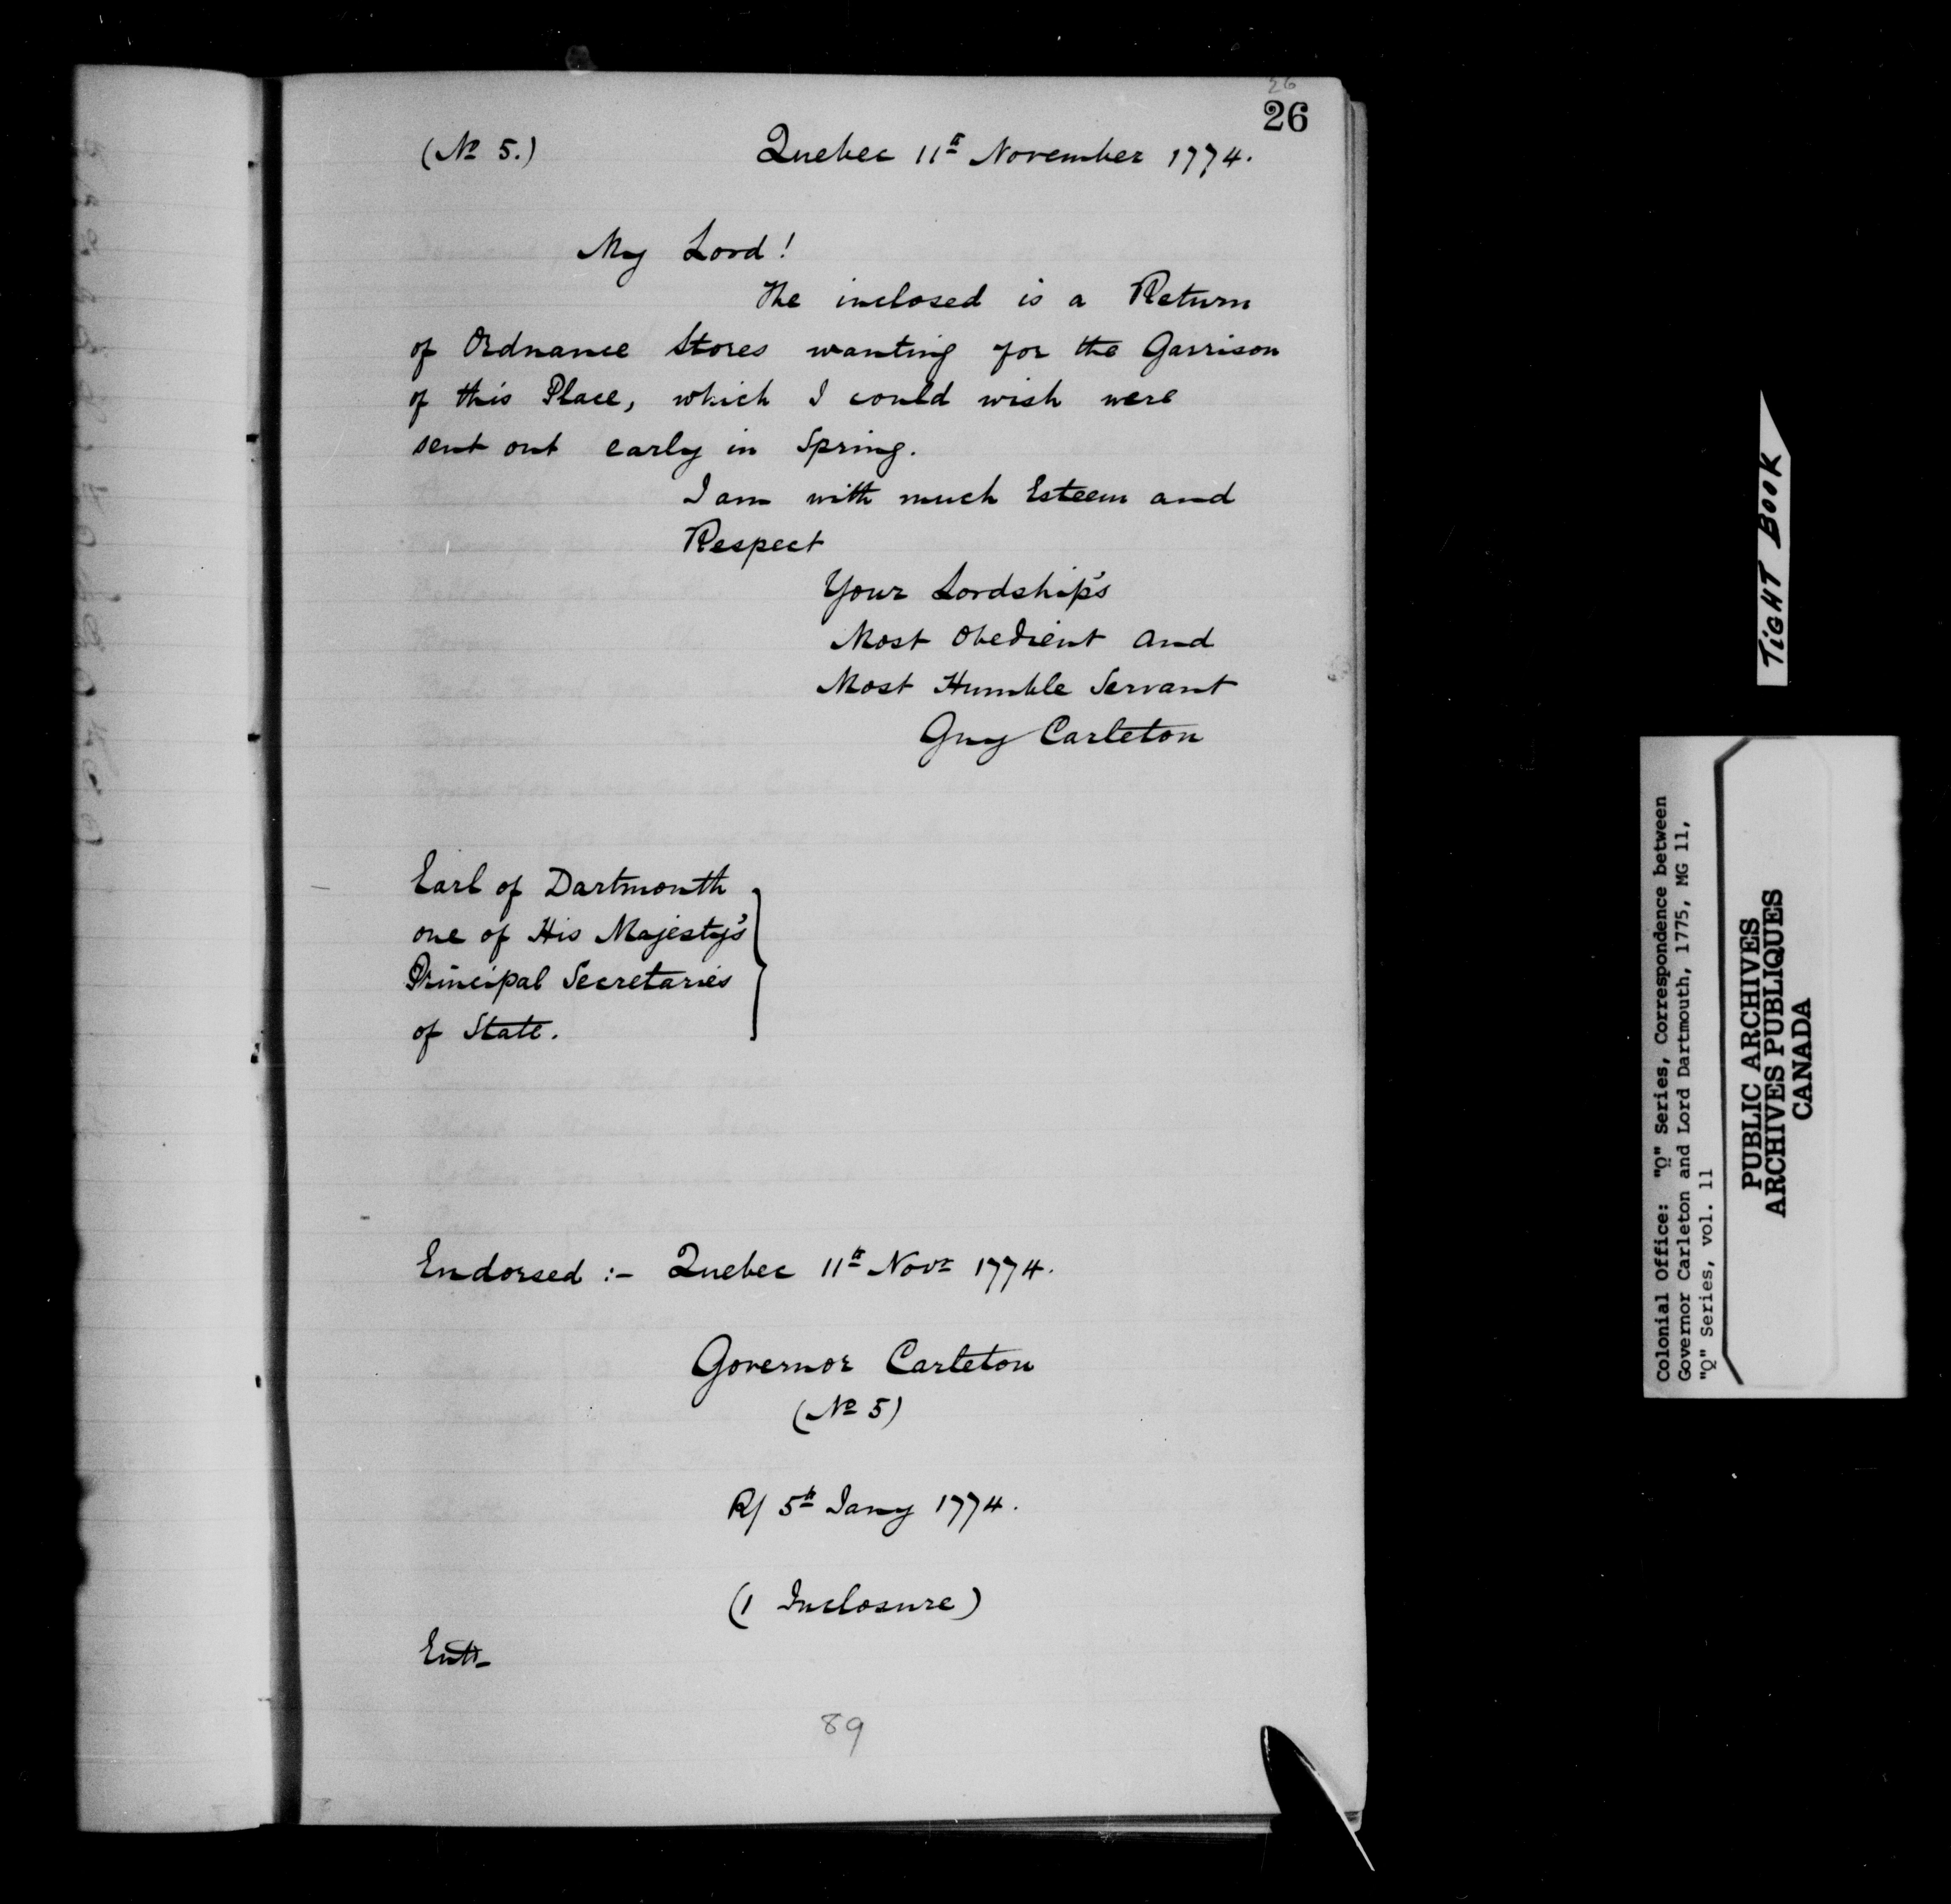 26
26
(No 5.) Quebec 11th November 1774.
My Lord!
The inclosed is a Return
of Ordnance Stores wanting for the Garrison
of this Place, which I could wish were
sent out early in Spring.
I am with much Esteem and
Respect
Your Lordship's
Most Obedient and
Most Humble Servant
Guy Carleton
Earl of Dartmouth
one of His Majesty's
Principal Secretaries
of State.
Endorsed :- Quebec 11th Novr 1774.
Governor Carleton
(No 5)
R/ 5th Jany 1774.
(1 Inclosure)
89
TIGHT BOOK
Colonial Office: "Q" Series, Correspondence between
Governor Carleton and Lord Dartmouth, 1775, MG 11,
"Q" Series, vol. 11
PUBLIC ARCHIVES
ARCHIVES PUBLIQUES
CANADA